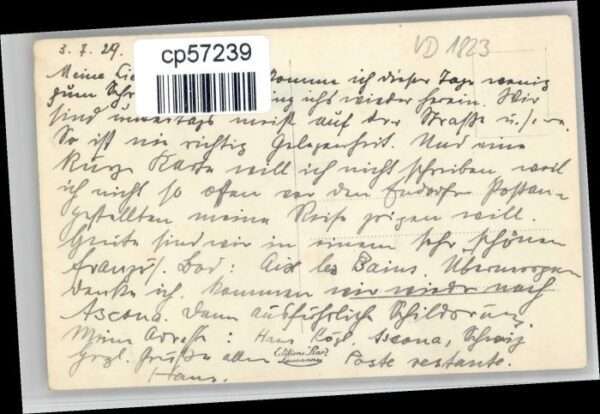 3. 7. 29.
cp57239
VD 1823
Meine komme ich dieser Tage wenig
zum ich's wieder herein. Wir
sind meist auf der Straße u.s.w.
So ist nie richtig Gelegenheit. Und eine
kurze Karte will ich nicht schreiben, weil
ich nicht so offen vor den Endorfer Postan-
gestellten meine Reise zeigen will.
Heute sind wir in einem sehr schönen
französ. Bad: Aix les Bains. Übermorgen
denke ich, kommen wir wieder nach
Ascona. Dann ausführliche Schilderung.
Meine Adresse: Hans Kögl, Ascona, Schweiz
herzl. Grüße allen Poste restante.
Hans.